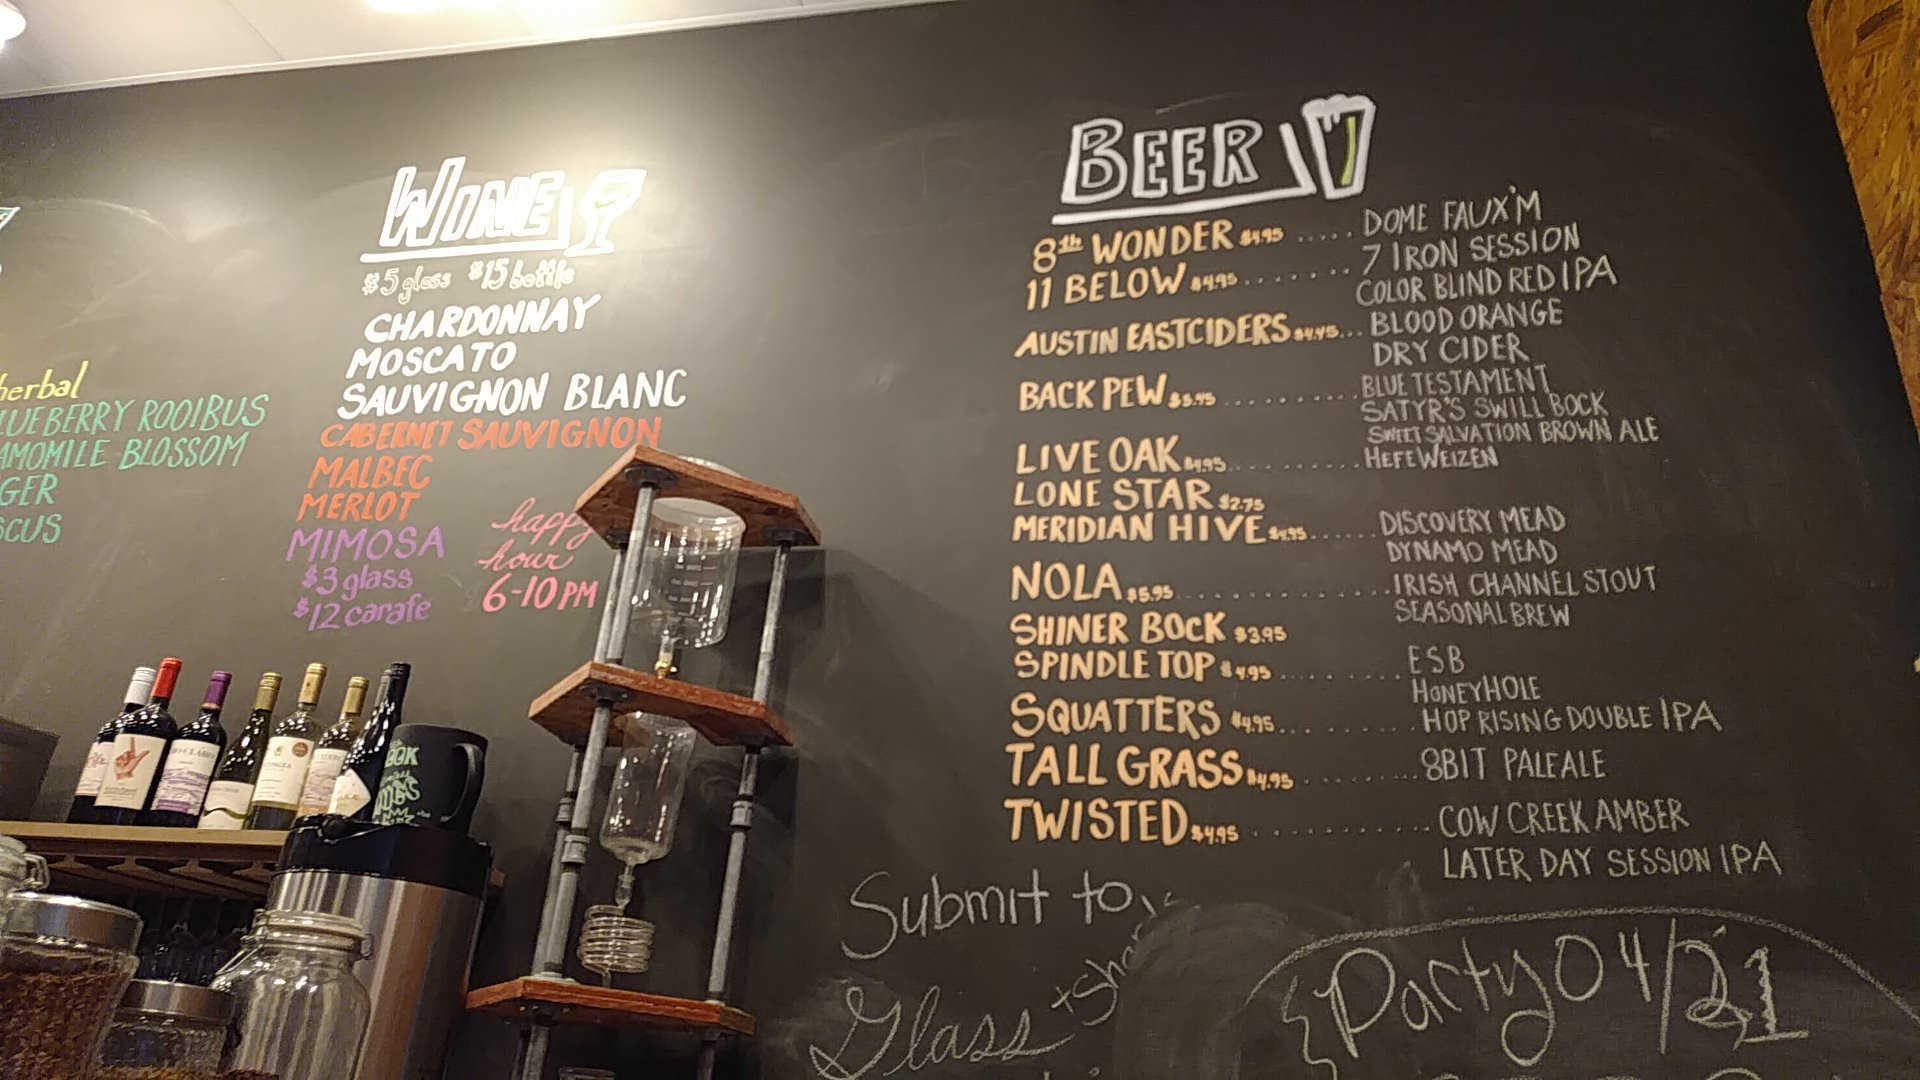 herbal
LUEBERRY ROOIBUS
AMOMILE BLOSSOM
GER
SCUS
WINE
$5 glass $15 bottle
CHARDONNAY
MOSCATO
SAUVIGNON BLANC
CABERNET SAUVIGNON
MALBEC
MERLOT
MIMOSA
$3 glass
$12 carafe
happy
hour
6-10 PM
BEER
8th WONDER $4.95 ..... DOME FAUX'M
11 BELOW $4.95 ....... 7 IRON SESSION
COLOR BLIND RED IPA
AUSTIN EASTCIDERS $4.45... BLOOD ORANGE
DRY CIDER
BACK PEW $5.95 .......... BLUE TESTAMENT
SATYR'S SWILL BOCK
SWEET SALVATION BROWN ALE
LIVE OAK $4.95 .......... HEFEWEIZEN
LONE STAR $2.75
MERIDIAN HIVE $4.95 ...... DISCOVERY MEAD
DYNAMO MEAD
NOLA $5.95 .............. IRISH CHANNEL STOUT
SEASONAL BREW
SHINER BOCK $3.95
SPINDLE TOP $4.95 ......... ESB
HONEYHOLE
SQUATTERS $4.95 .......... HOP RISING DOUBLE IPA
TALL GRASS $4.95 ......... 8BIT PALE ALE
TWISTED $4.95 ............ COW CREEK AMBER
LATER DAY SESSION IPA
Submit to
Glass + Shar
Party 04/21